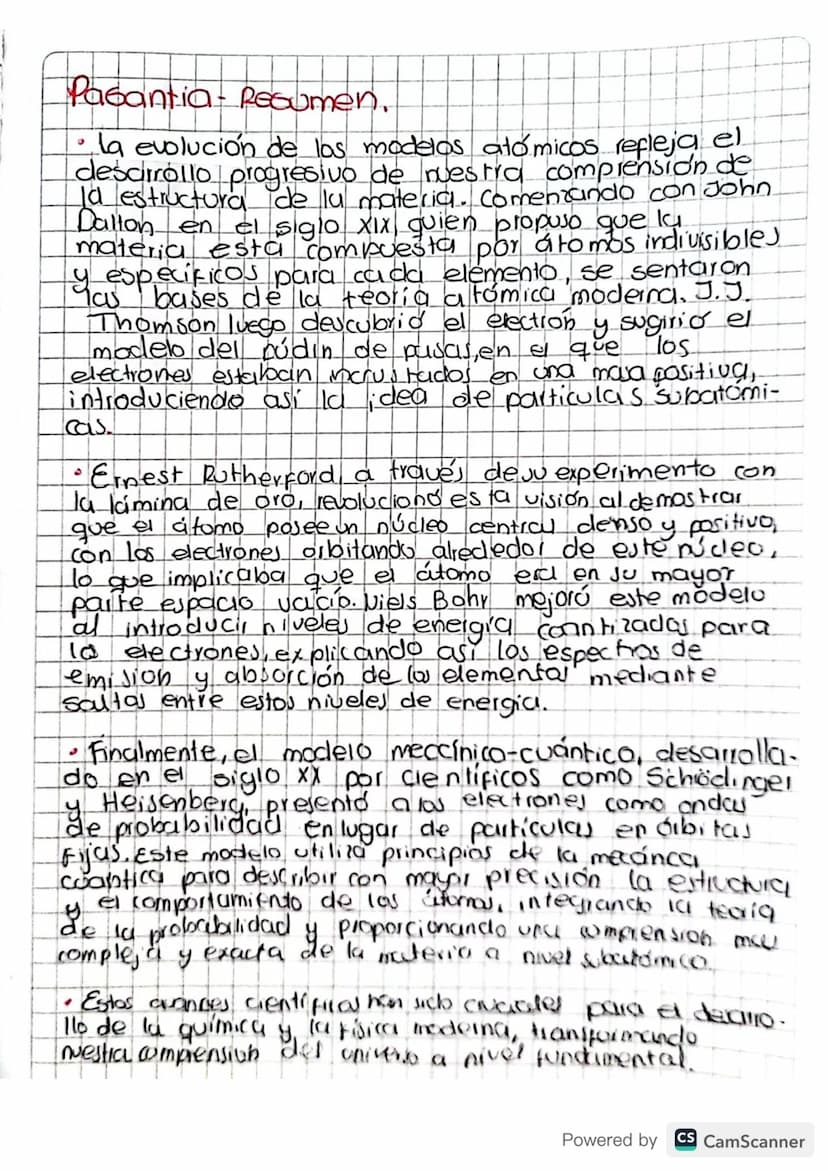 Pasantia - Resumen.
• la evolución de los modelos atómicos refleja el
desarrollo progresivo de nuestra comprensión de
la estructura de la materia. Comenzando con John
Dalton en el siglo XIX, quien propuso que la
materia está compuesta por átomos indivisibles
y específicos para cada elemento, se sentaron
las bases de la teoría atómica moderna. J.J.
Thomson luego descubrió el electrón y sugirió el
modelo del púdin de pasas, en el que los
electrones estaban incrustados en una masa positiva,
introduciendo así la idea de particulas subatómi-
cas.
• Ernest Rutherford, a través de su experimento con
la lámina de oro, revolucionó esta visión al demostrar
que el átomo posee un núcleo central denso y positivo,
con los electrones orbitando alrededor de este núcleo,
lo que implicaba que el átomo era en su mayor
parte espacio vacío. Niels Bohr mejoró este modelo
al introducir niveles de energía cuantizadas para
los electrones, explicando así los espectros de
emision y absorción de los elementos mediante
saltos entre estos niveles de energia.
• Finalmente, el modelo mecánico-cuántico, desarrolla-
do en el siglo XX por cientificos como Schödinger
y Heisenberg, presentó a los electrones como ondas
de probabilidad en lugar de particulas en órbitas
fijas. Este modelo utiliza principios de la mecánca
cuantica para describir con mayor precisión la estructura
y el comportamiento de los átomos, integrando la teoria
de la probabilidad y proporcionando una comprension mas
compleja y exacta de la materia a nivel subatómico.
• Estos avances cientificos han sido cruciales para el desarro-
llo de la química y la física moderna, transformando
nuestra comprensión del universo a nivel fundimental.
Powered by CS CamScanner